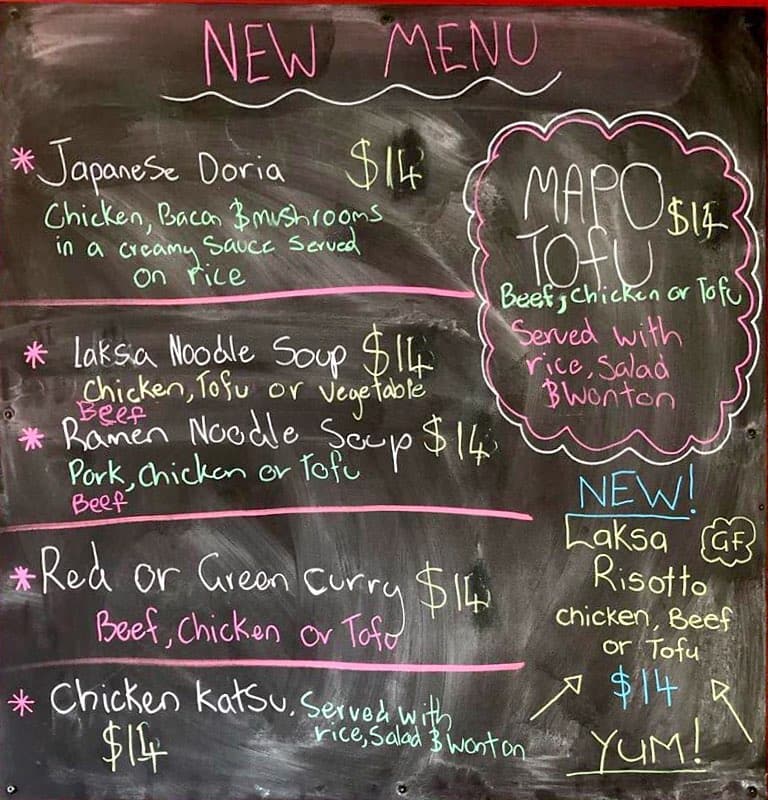 NEW MENU
* Japanese Doria $14
Chicken, Bacon & mushrooms
in a creamy Sauce Served
on rice
* Laksa Noodle Soup $14
Chicken, Tofu or Vegetable
Beef
* Ramen Noodle Soup $14
Pork, Chicken or Tofu
Beef
* Red or Green Curry $14
Beef, Chicken or Tofu
* Chicken Katsu. Served with
rice, Salad & Wonton
$14
MAPO
TOFU $14
Beef, Chicken or Tofu
Served with
rice, Salad
& Wonton
NEW!
Laksa GF
Risotto
chicken, Beef
or Tofu
$14
YUM!